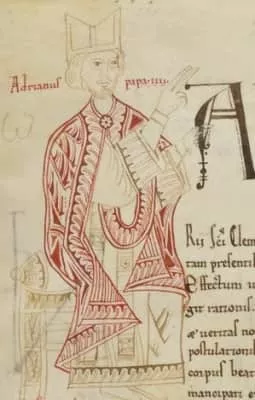 Adrianus papa iiii.
A
Rii Sci Clem
tam presentib
& effectum u
git rationis.
æ ueritas no
postulationib
corpus bea
mancipari e